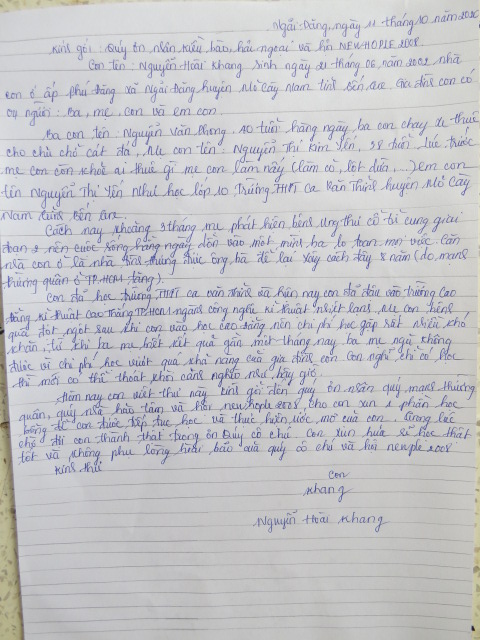 Ngãi Đăng, ngày 11 tháng 10 năm 2020
Kính gởi: Quý ân nhân kiều bào, hải ngoại và hội NEWHOPLE 2008.
Con tên: Nguyễn Hoài Khang sinh ngày 21 tháng 06 năm 2002 nhà
con ở ấp Phú Đăng xã Ngãi Đăng huyện Mỏ Cày Nam tỉnh Bến Tre. Gia đình con có
04 người: Ba, mẹ, con và em con.
Ba con tên: Nguyễn Văn Phong, 40 tuổi hằng ngày ba con chạy xe thuê
cho chủ chở cát đá, Mẹ con tên: Nguyễn Thị Kim Yến, 38 tuổi lúc trước
mẹ con còn khoẻ ai thuê gì mẹ con làm nấy (làm cỏ, lột dừa,...) em con
tên Nguyễn Thị Yến Như học lớp 10 Trường THPT Ca Văn Thỉnh huyện Mỏ Cày
Nam tỉnh Bến Tre.
Cách nay khoảng 2 tháng mẹ phát hiện bệnh ung thư cổ tử cung giai
đoạn 2 nên cuộc sống hằng ngày dồn vào một mình ba lo toan mọi việc. Căn
nhà con ở là nhà tình thương được ông bà để lại xây cách đây 8 năm (do mạnh
thường quân ở TP.HCM tặng).
Con đã học trường THPT Ca Văn Thỉnh và hiện nay con đã đậu vào trường Cao
đẳng Kĩ thuật Cao Thắng TP.HCM ngành công nghệ kĩ thuật nhiệt lạnh. Mẹ con bệnh
quá đột ngột sau khi con vào học cao đẳng nên chi phí học gặp rất nhiều khó
khăn, từ khi ba mẹ biết kết quả gần một tháng nay ba mẹ ngủ không
được vì chi phí học vượt quá khả năng của gia đình con. Con nghĩ chỉ có học
thì mới có thể thoát khỏi cảnh nghèo như bây giờ.
Hôm nay con viết thư này kính gởi đến quý ân nhân quý mạnh thường
quân, quý nhà hảo tâm và hội newhople 2008, cho con xin 1 phần học
bổng để con được tiếp tục học và thực hiện ước mơ của con.
chờ đợi con thành thật trong ơn Quý cô chú. Con xin hứa sẽ học thật
tốt và không phụ lòng của quý cô chú và hội newple 2008
Kính thư
Con
Khang
Nguyễn Hoài Khang